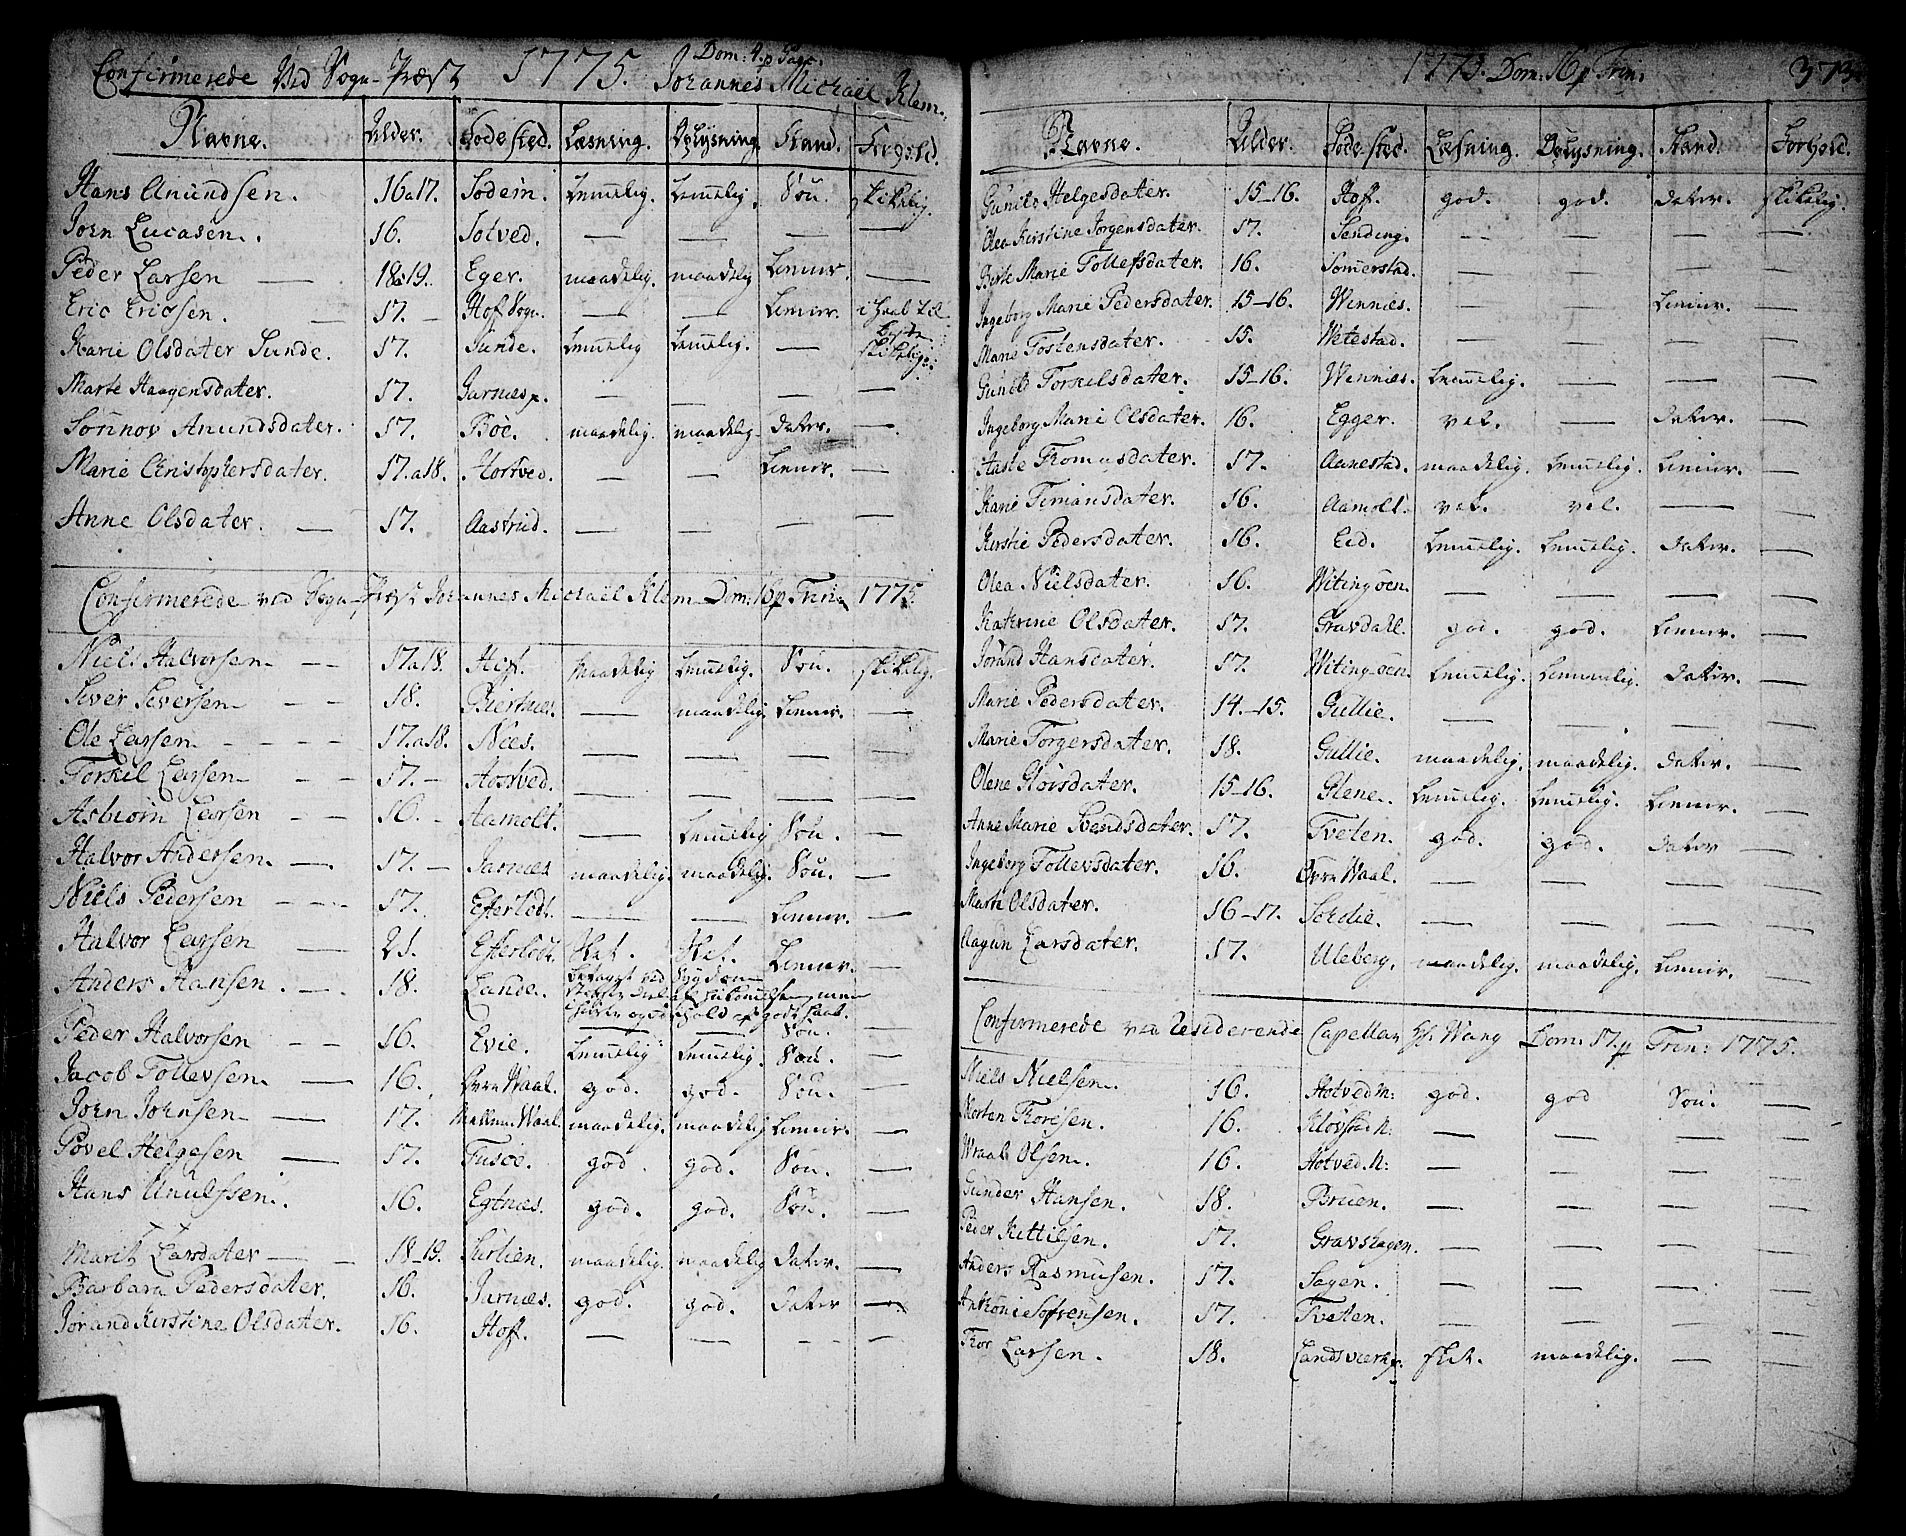 Confirmerede Ved Sogn-Præst 1775. Dom: 4. p Pasc. Johannes Michaël Klem.
Navne. Alder. Fødested. Læsning. Oplysning. Stand. Forhold.
Hans Anundsen. 16 a 17. Sodem. Lemelig. Lemelig. Søn. skikelig.
Jorn Lucasen. 16. Totved. — — — —
Peder Larsen — 18 a 19. Eger. maadelig. maadelig Lemier. —
Eric Ericsen. — 17. — Hof Sogn. — — Lemier.
Karie Olsdater Sunde. 17. Sunde. Lemelig Lemelig. — skikelig.
Marte Haagensdater. 17. Jarnes — — —
Sønnov Anundsdater. 17. Bøe. maadelig. maadelig. Dater. —
Marie Christophersdater. 17. a 18. Horrved. — — Lemier. —
Anne Olsdater. — 17. Aastrud. — — — —
Confirmerede ved Sogn-Præst Johannes Michaël Klem Dom: 16 p Trin: 1775.
Niels Halvorsen — — 17 a 18. Hoff. maadelig Lemelig. Søn. skikelig.
Siver Siversen — — 18. Biernæs. — maadelig. Lemier. —
Ole Larsen. — — — — 17. a 18. Nœs. — — — —
Torkil Larsen — — — 17. — Aosved. — — — —
Asbiørn Larsen — — 16. — Aamolt. — Lemelig Søn. —
Halvor Andersen. — 17. — Jarnæs maadelig. maadelig. Søn. —
Niels Pedersen — — — 17. Efterlodt. — — Lemier. —
Halvor Larsen — 21. Efterlodt. Slet. Slet. Lemier. —
Anders Hansen. — . 18. Lande.
Peder Halvorsen — — 16. Evie. Lemelig Lemelig. Søn. —
Jacob Tollevsen. — 16. Øvre Waal. god. god. Søn.
Jorn Jornsen — — 17. Mellem Waal. maadelig. maadelig Lemier. —
Povel Helgesen — 17. Fusøe. god. god. Søn. —
Hans Unulfsen. 16. Egtnæs. god. god. Søn. —
Marit Larsdater — — 18-19. Surlien. maadelig. maadelig Dater. —
Barbara Pedersdater. 16. Jarnæs. god. god. Dater —
Jorand Kirstine Olsdater. 16. Hoff. — — — —
1775. Dom: 16 p Trin: 373
Navne. Alder. Fødested. Læsning. Oplysning. Stand. Forhold.
Gunild Helgesdater. 15-16. Hof. god. god. Dater. skikelig.
Olea Kirstine Jørgensdater. 17. Sending. — — — —
Birte Marie Tollefsdater. 16. Somerstad. — — — —
Ingeborg Marie Pedersdater. 15-16. Wennies. — — Lemier. —
Marie Tostensdater. 15. Wetestad. — — — —
Gunild Torkilsdater. 15-16. Wennies. Lemelig. — — —
Ingeborg Marie Olsdater. 16. Egger. vel. — Dater. —
Aaste Thomasdater. 17. Aanestad. maadelig. Lemelig. Lemier. —
Karie Timansdater. 16. Aamolt. vel. vel. — —
Kirstie Pedersdater. 16. Eid. Lemelig. Lemelig. Dater. —
Olea Nielsdater. 16. Witingøen. — — — —
Kathrine Olsdater. 17. Gravdahl. god. god. Lemier. —
Jorand Hansdater. 17. Witingøen. Lemelig. Lemmelig. Dater. —
Marie Pedersdater. 14-15. Gullie. — — — —
Marie Torgersdater. 18. Gullie. maadelig. maadelig. Dater. —
Olene Gloisdater. 15-16. Glene. Lemelig. Lemelig. Lemier. —
Anne Marie Svendsdater. 17. Tveten. god. god. Dater —
Ingeborg Tollevsdater. 16. Øvre Waal. — — — —
Marte Olsdater. 16-17. Sordie. — — — —
Aagun Larsdater. 17. Uleberg. maadelig. maadelig. Lemier. —
Confirmerede ved Residerende Capellan Hr. Wang Dom: 17. p Trin: 1775.
Niels Nielsen. 16. Hotved N: god. god Søn. —
Morten Thoresen. 16. Kløvstad N: — — — —
Wraal Olsen. 16. Hotved. N: — — — —
Gunder Hansen. 18. Bruen. — — — —
Peder Kittilsen. 17. Gravshagen. — — — —
Anders Rasmusen. 17. Sagen. — — — —
Anthoni Sørensen. 17. Tveten. — — — —
Thor Larsen. 18. Landsværk slet. maadelig. — —